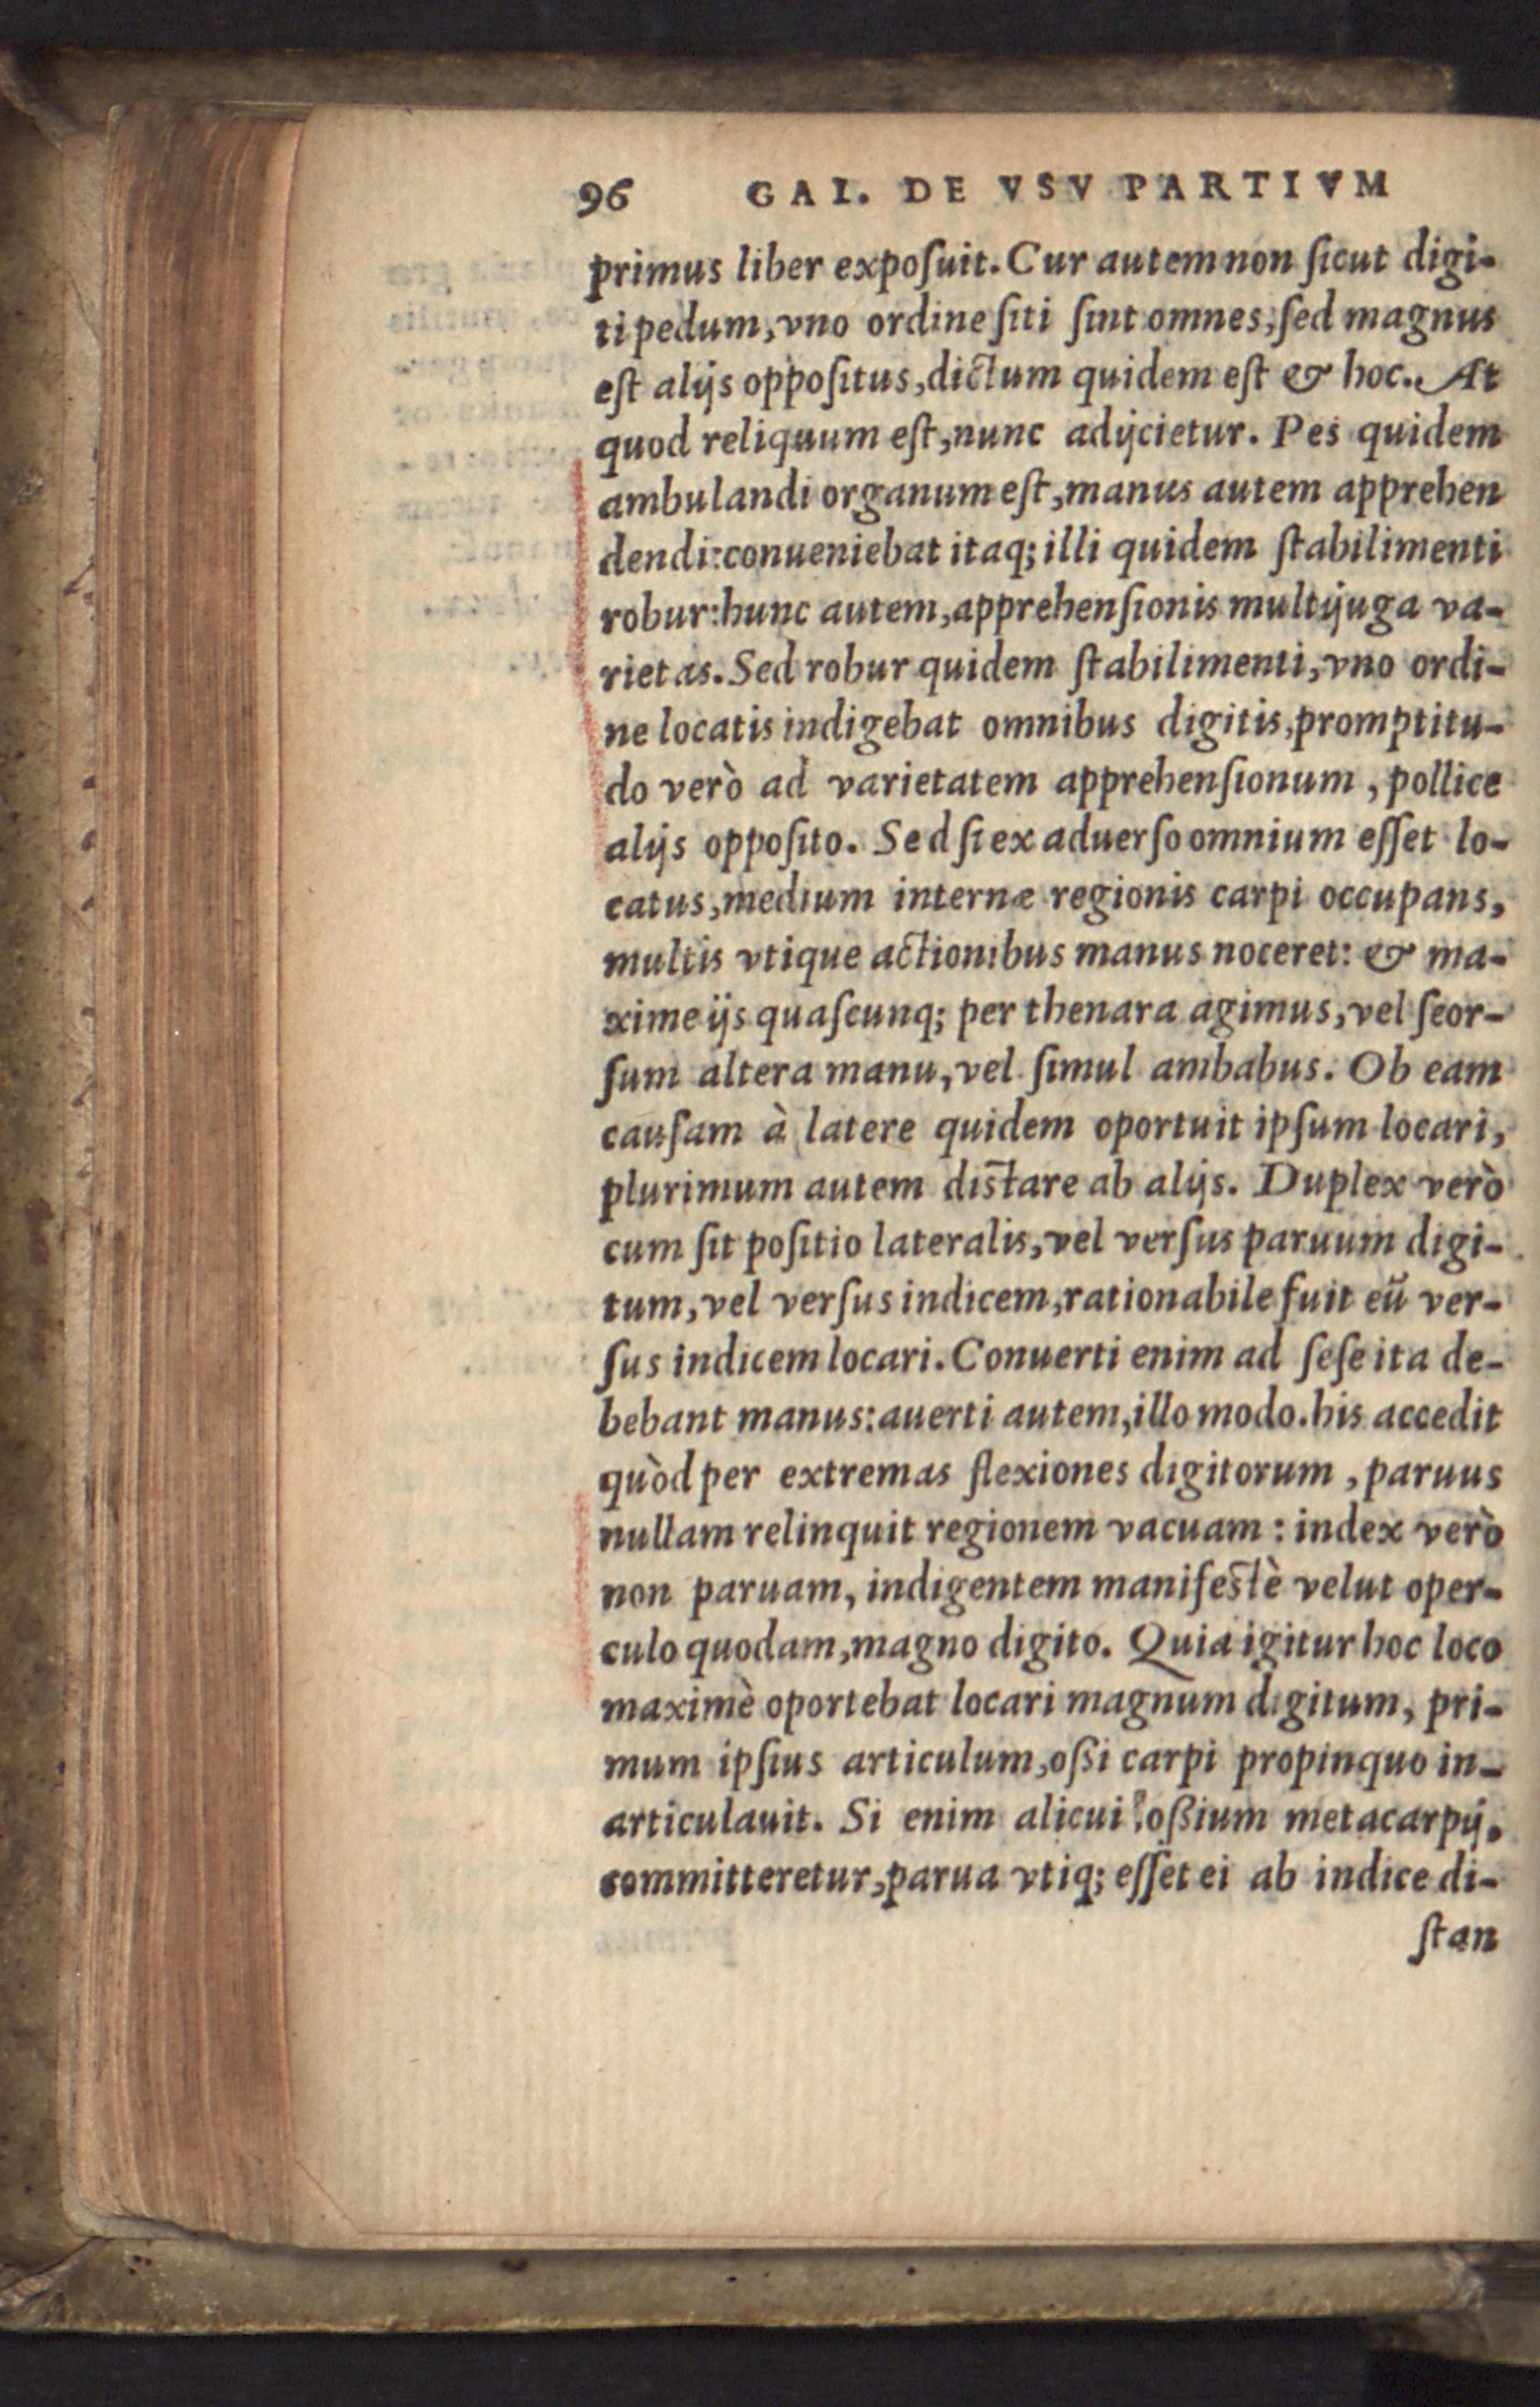 96 GAI. DE VSV PARTIVM
primus liber exposuit. Cur autem non sicut digi-
ti pedum, vno ordine siti sint omnes, sed magnus
est alijs oppositus, dictum quidem est & hoc. At
quod reliquum est, nunc adijcietur. Pes quidem
ambulandi organum est, manus autem apprehen
dendi: conueniebat itaq; illi quidem stabilimenti
robur: hunc autem, apprehensionis multijuga va-
rietas. Sed robur quidem stabilimenti, vno ordi-
ne locatis indigebat omnibus digitis, promptitu-
do verò ad varietatem apprehensionum, pollice
alijs opposito. Sed si ex aduerso omnium esset lo-
catus, medium internæ regionis carpi occupans,
multis vtique actionibus manus noceret: & ma-
xime ijs quascunq; per thenara agimus, vel seor-
sum altera manu, vel simul ambabus. Ob eam
causam à latere quidem oportuit ipsum locari,
plurimum autem distare ab alijs. Duplex verò
cum sit positio lateralis, vel versus paruum digi-
tum, vel versus indicem, rationabile fuit eū ver-
sus indicem locari. Conuerti enim ad sese ita de-
bebant manus: auerti autem, illo modo. his accedit
quòd per extremas flexiones digitorum, paruus
nullam relinquit regionem vacuam: index verò
non paruam, indigentem manifestè velut oper-
culo quodam, magno digito. Quia igitur hoc loco
maximè oportebat locari magnum digitum, pri-
mum ipsius articulum, oßi carpi propinquo in-
articulauit. Si enim alicui oßium metacarpij,
committeretur, parua vtiq; esset ei ab indice di-
stan